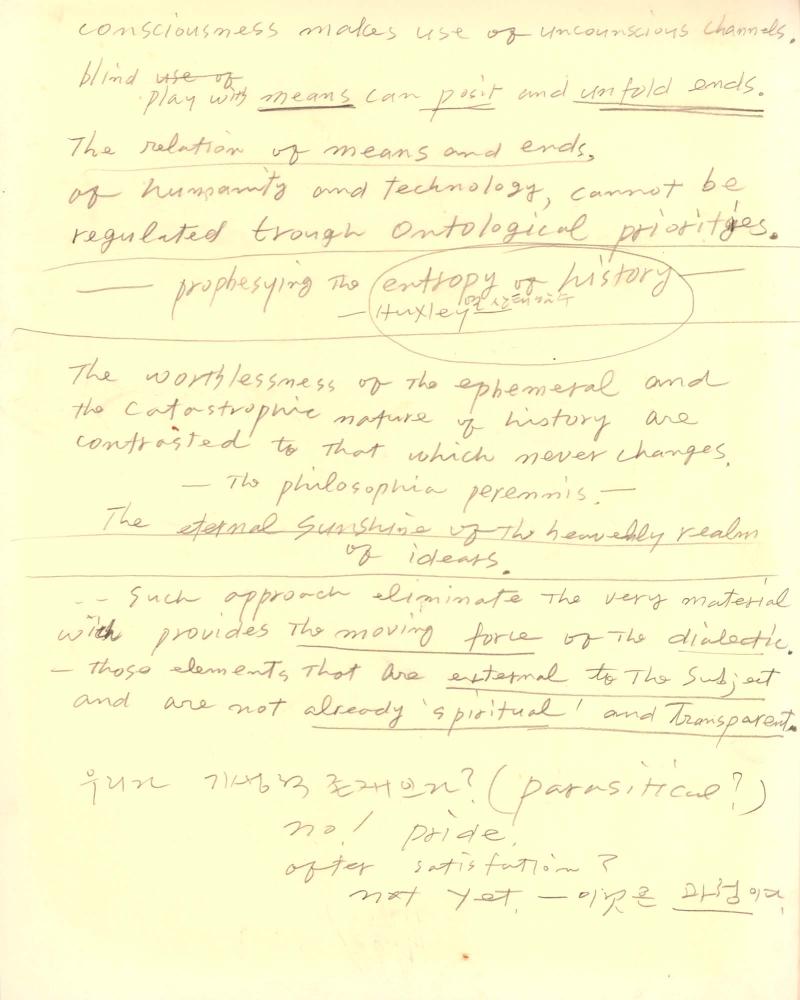 consciousness makes use of uncounscious channels.
blind use of
play with means can posit and unfold ends.
The relation of means and ends,
of humanity and technology, cannot be
regulated trough Ontological priorities.
— prophesying The entropy of history —
— Huxley
The worthlessness of The ephemeral and
the catastrophic nature of history are
contrasted to That which never changes.
— The philosophia perennis. —
The eternal Sunshine of The heavenly realm
of ideas.
-- Such approach eliminate The very material
with provides The moving force of The dialectic.
— Those elements That are external to The Subject
and are not already 'spiritual' and Transparent.
우리는 기생적 존재인가? (parasitical?)
no! pride!
after satisfation?
not yet. — 이것은 과정이다.